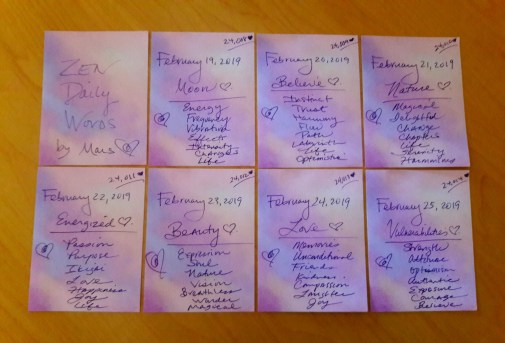 ZEN
Daily
Words
by Mars
February 19, 2019
Moon
Energy
Frequency
Vibration
Effects
Intensity
Life
February 20, 2019
Believe
Instinct
Trust
Harmony
Flow
Path
Labyrinth
Life
Optimistic
February 21, 2019
Nature
Magical
Delightful
Change
Chapters
Life
Serenity
Harmonious
24,021
February 22, 2019
Energized
Passion
Purpose
Ikigai
Love
Happiness
Joy
Life
February 23, 2019
Beauty
Expression
Soul
Nature
Vision
Breathless
Wonder
Magical
February 24, 2019
Love
Memories
Unconditional
Friends
Kindness
Compassion
Laughter
Joy
February 25, 2019
Vulnerabilities
Strength
Attitude
Optimism
Authentic
Exposure
Courage
Believe